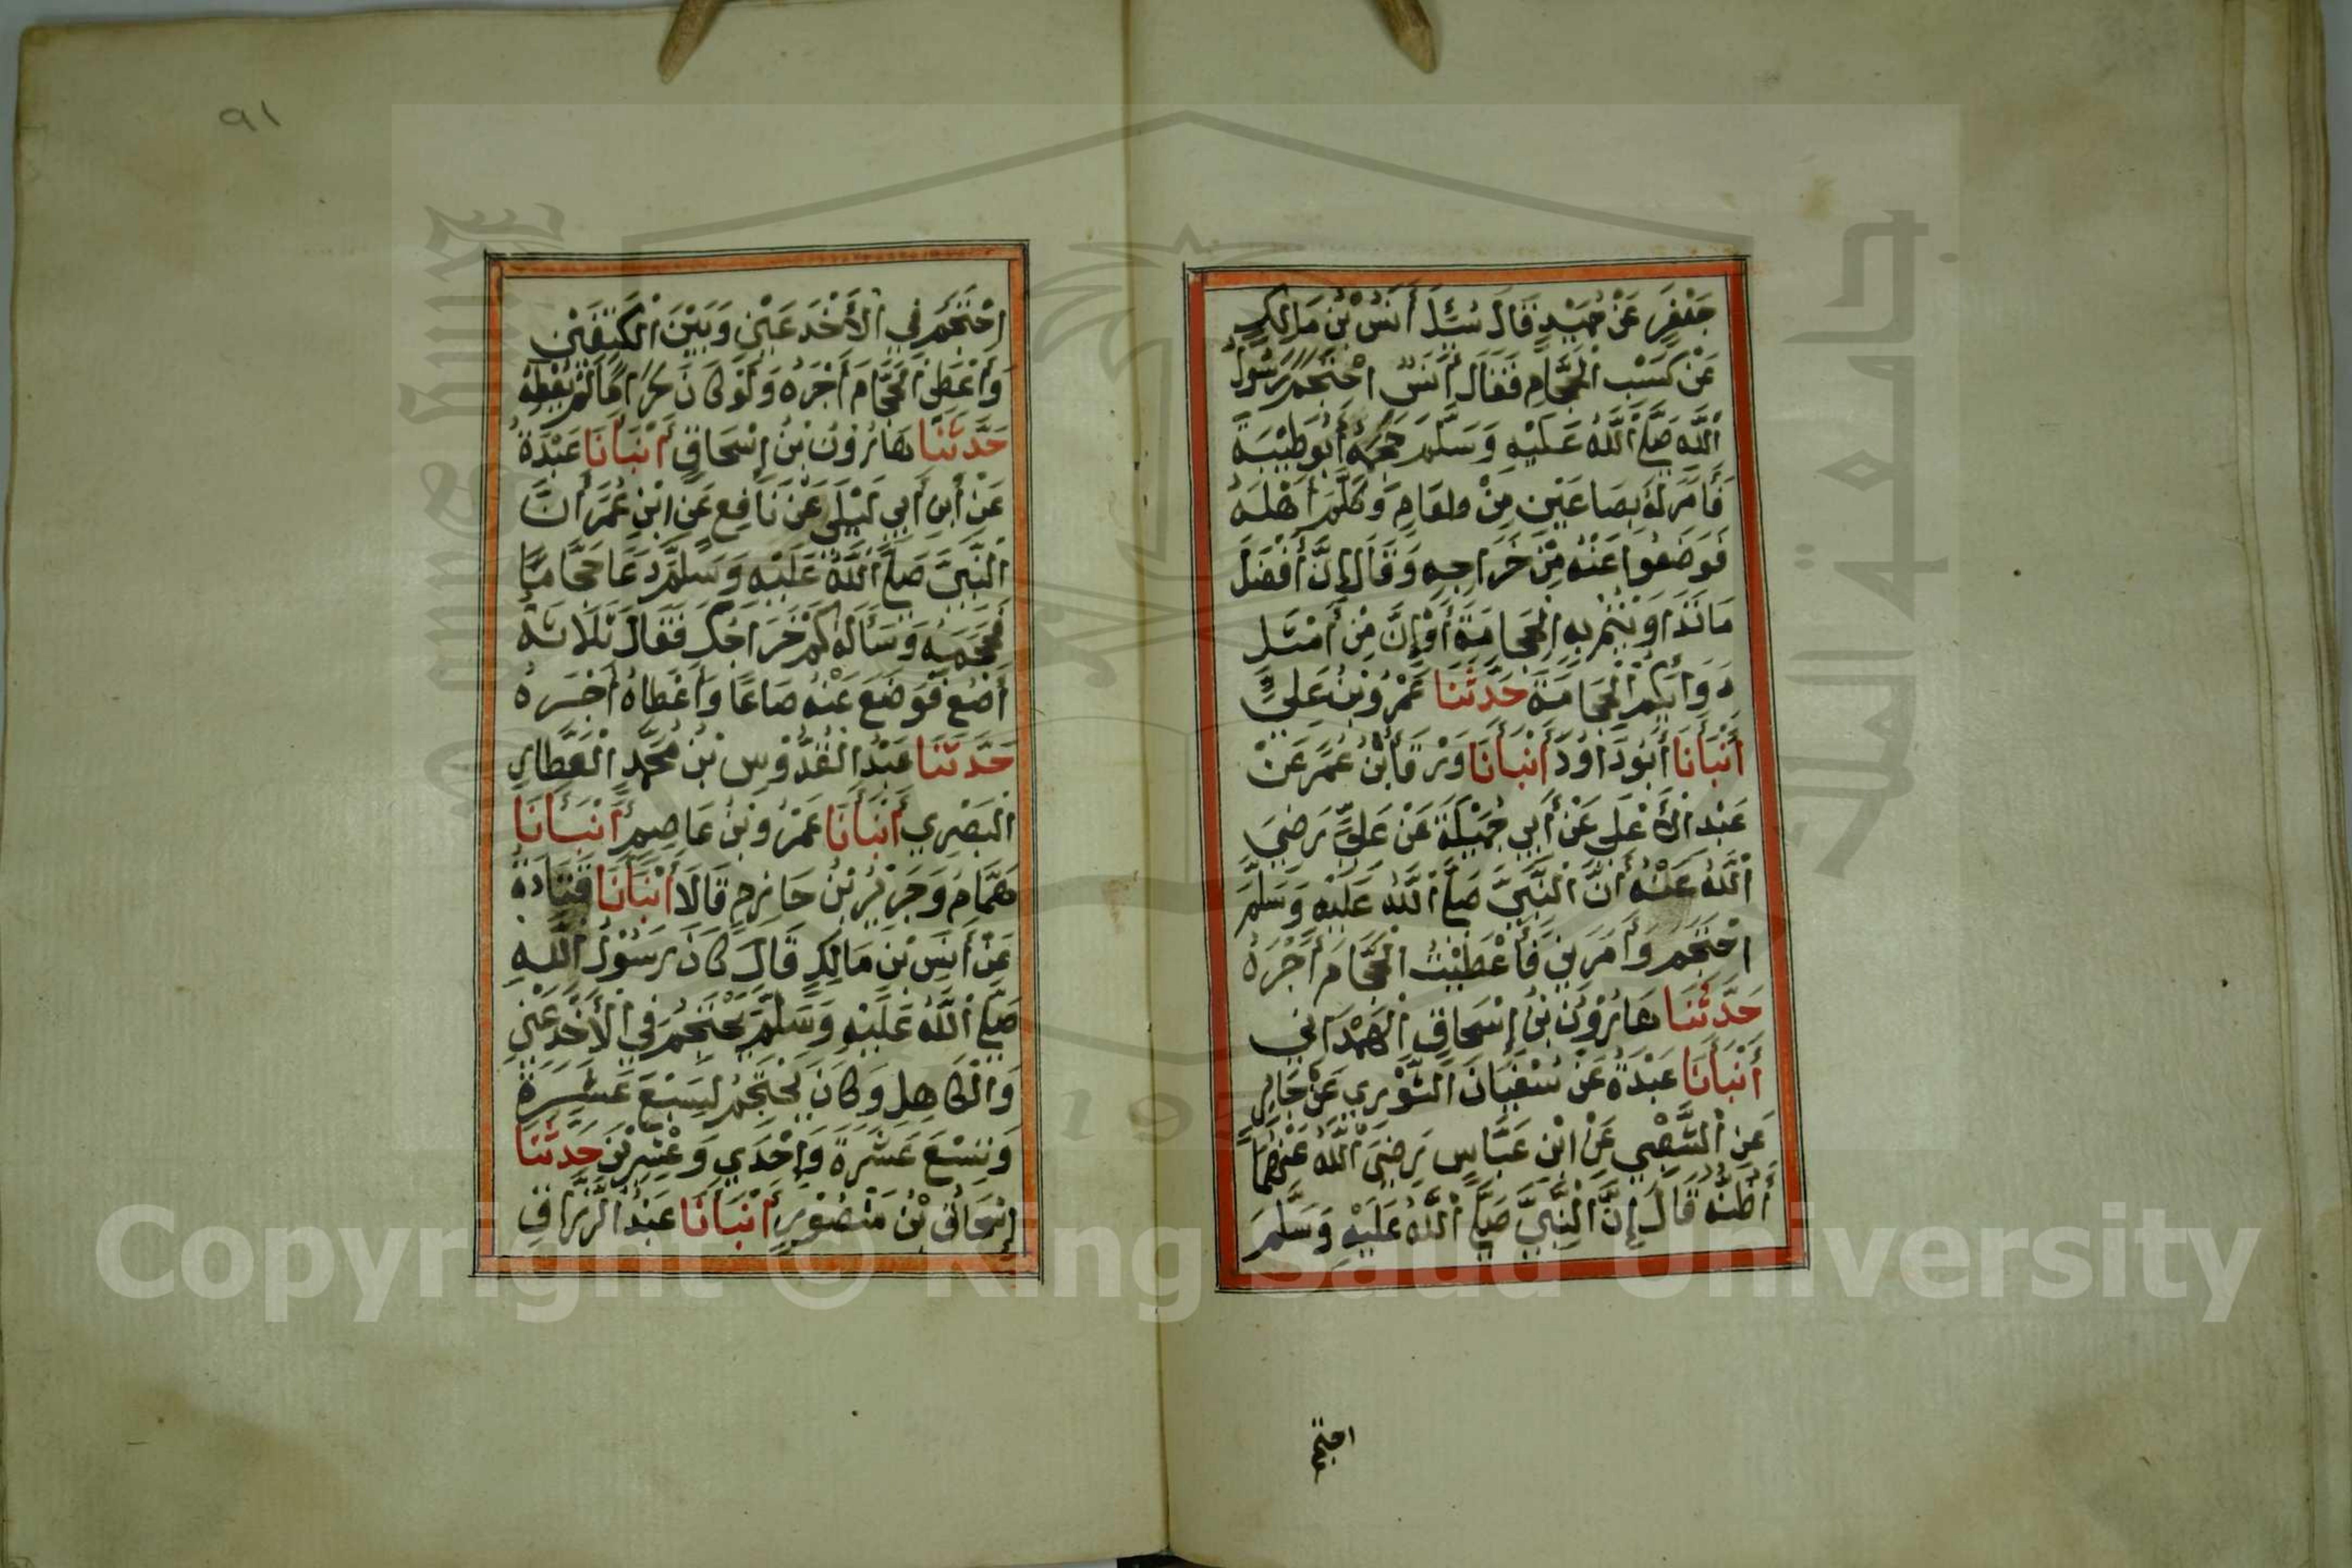 جَعْفَرٍ عَنْ حُمَيْدٍ قَالَ سُئِلَ أَنَسُ بْنُ مَالِكٍ
عَنْ كَسْبِ الْحَجَّامِ فَقَالَ أَنَسٌ احْتَجَمَ رَسُولُ
اللَّهِ صَلَّى اللَّهُ عَلَيْهِ وَسَلَّمَ حَجَمَهُ أَبُو طَيْبَةَ
فَأَمَرَ لَهُ بِصَاعَيْنِ مِنْ طَعَامٍ وَكَلَّمَ أَهْلَهُ
فَوَضَعُوا عَنْهُ مِنْ خَرَاجِهِ وَقَالَ إِنَّ أَفْضَلَ
مَا تَدَاوَيْتُمْ بِهِ الْحِجَامَةُ أَوْ إِنَّ مِنْ أَمْثَلِ
دَوَائِكُمُ الْحِجَامَةَ حَدَّثَنَا عَمْرُو بْنُ عَلِيٍّ
أَنْبَأَنَا أَبُو دَاوُدَ أَنْبَأَنَا وَرْقَاءُ بْنُ عُمَرَ عَنْ
عَبْدِ الْأَعْلَى عَنْ أَبِي جَمِيلَةَ عَنْ عَلِيٍّ رَضِيَ
اللَّهُ عَنْهُ أَنَّ النَّبِيَّ صَلَّى اللَّهُ عَلَيْهِ وَسَلَّمَ
احْتَجَمَ وَأَمَرَنِي فَأَعْطَيْتُ الْحَجَّامَ أَجْرَهُ
حَدَّثَنَا هَارُوْنُ بْنُ إِسْحَاقَ الْهَمْدَانِي
أَنْبَأَنَا عَبْدَةُ عَنْ سُفْيَانَ الثَّوْرِي عَنْ جَابِرٍ
عَنِ الشَّعْبِي عَنْ ابْنِ عَبَّاسٍ رَضِيَ اللَّهُ عَنْهُمَا
أَظُنُّهُ قَالَ إِنَّ النَّبِيَّ صَلَّى اللَّهُ عَلَيْهِ وَسَلَّمَ
احتجم
٩١
احْتَجَمَ فِي الْأَخْدَعَيْنِ وَبَيْنَ الْكَتِفَيْنِ
وَأَعْطَى الْحَجَّامَ أَجْرَهُ وَلَوْ كَانَ حَرَامًا لَمْ يُعْطِهِ
حَدَّثَنَا هَارُوْنُ بْنُ إِسْحَاقَ أَنْبَأَنَا عَبْدَةُ
عَنْ أَبِن أَبِي لَيْلَى عَنْ نَافِعٍ عَنِ ابْنِ عُمَرَ أَنَّ
النَّبِيَّ صَلَّى اللَّهُ عَلَيْهِ وَسَلَّمَ دَعَا حَجَّامًا
فَحَجَمَهُ وَسَأَلَهُ كَمْ خَرَاجُكَ فَقَالَ ثَلَاثَةُ
أَصُعٍ فَوَضَعَ عَنْهُ صَاعًا وَأَعْطَاهُ أَجْرَهُ
حَدَّثَنَا عَبْدُ الْقُدُّوْسِ بْنُ مُحَمَّدٍ الْعَطَّارِي
الْبَصْرِي أَنْبَأَنَا عَمْرُو بْنُ عَاصِمٍ أَنْبَأَنَا
هَمَّامُ وَجَرِيْرُ بْنُ حَازِمٍ قَالَا أَنْبَأَنَا قَتَادَةُ
عَنْ أَنَسِ بْنِ مَالِكٍ قَالَ كَانَ رَسُوْلُ اللَّهِ
صَلَّى اللَّهُ عَلَيْهِ وَسَلَّمَ يَحْتَجِمُ فِي الْأَخْدَعَيْنِ
وَالْكَاهِلِ وَكَانَ يَحْتَجِمُ لِسَبْعَ عَشَرَةَ
وَتِسْعَ عَشْرَةَ وَإِحْدَي وَعِشْرِيْنَ حَدَّثَنَا
إِسْحَاقُ بْنُ مَنْصُوْرٍ أَنْبَأَنَا عَبْدُ الرَّزَّاقِ
Copyright © King Saud University